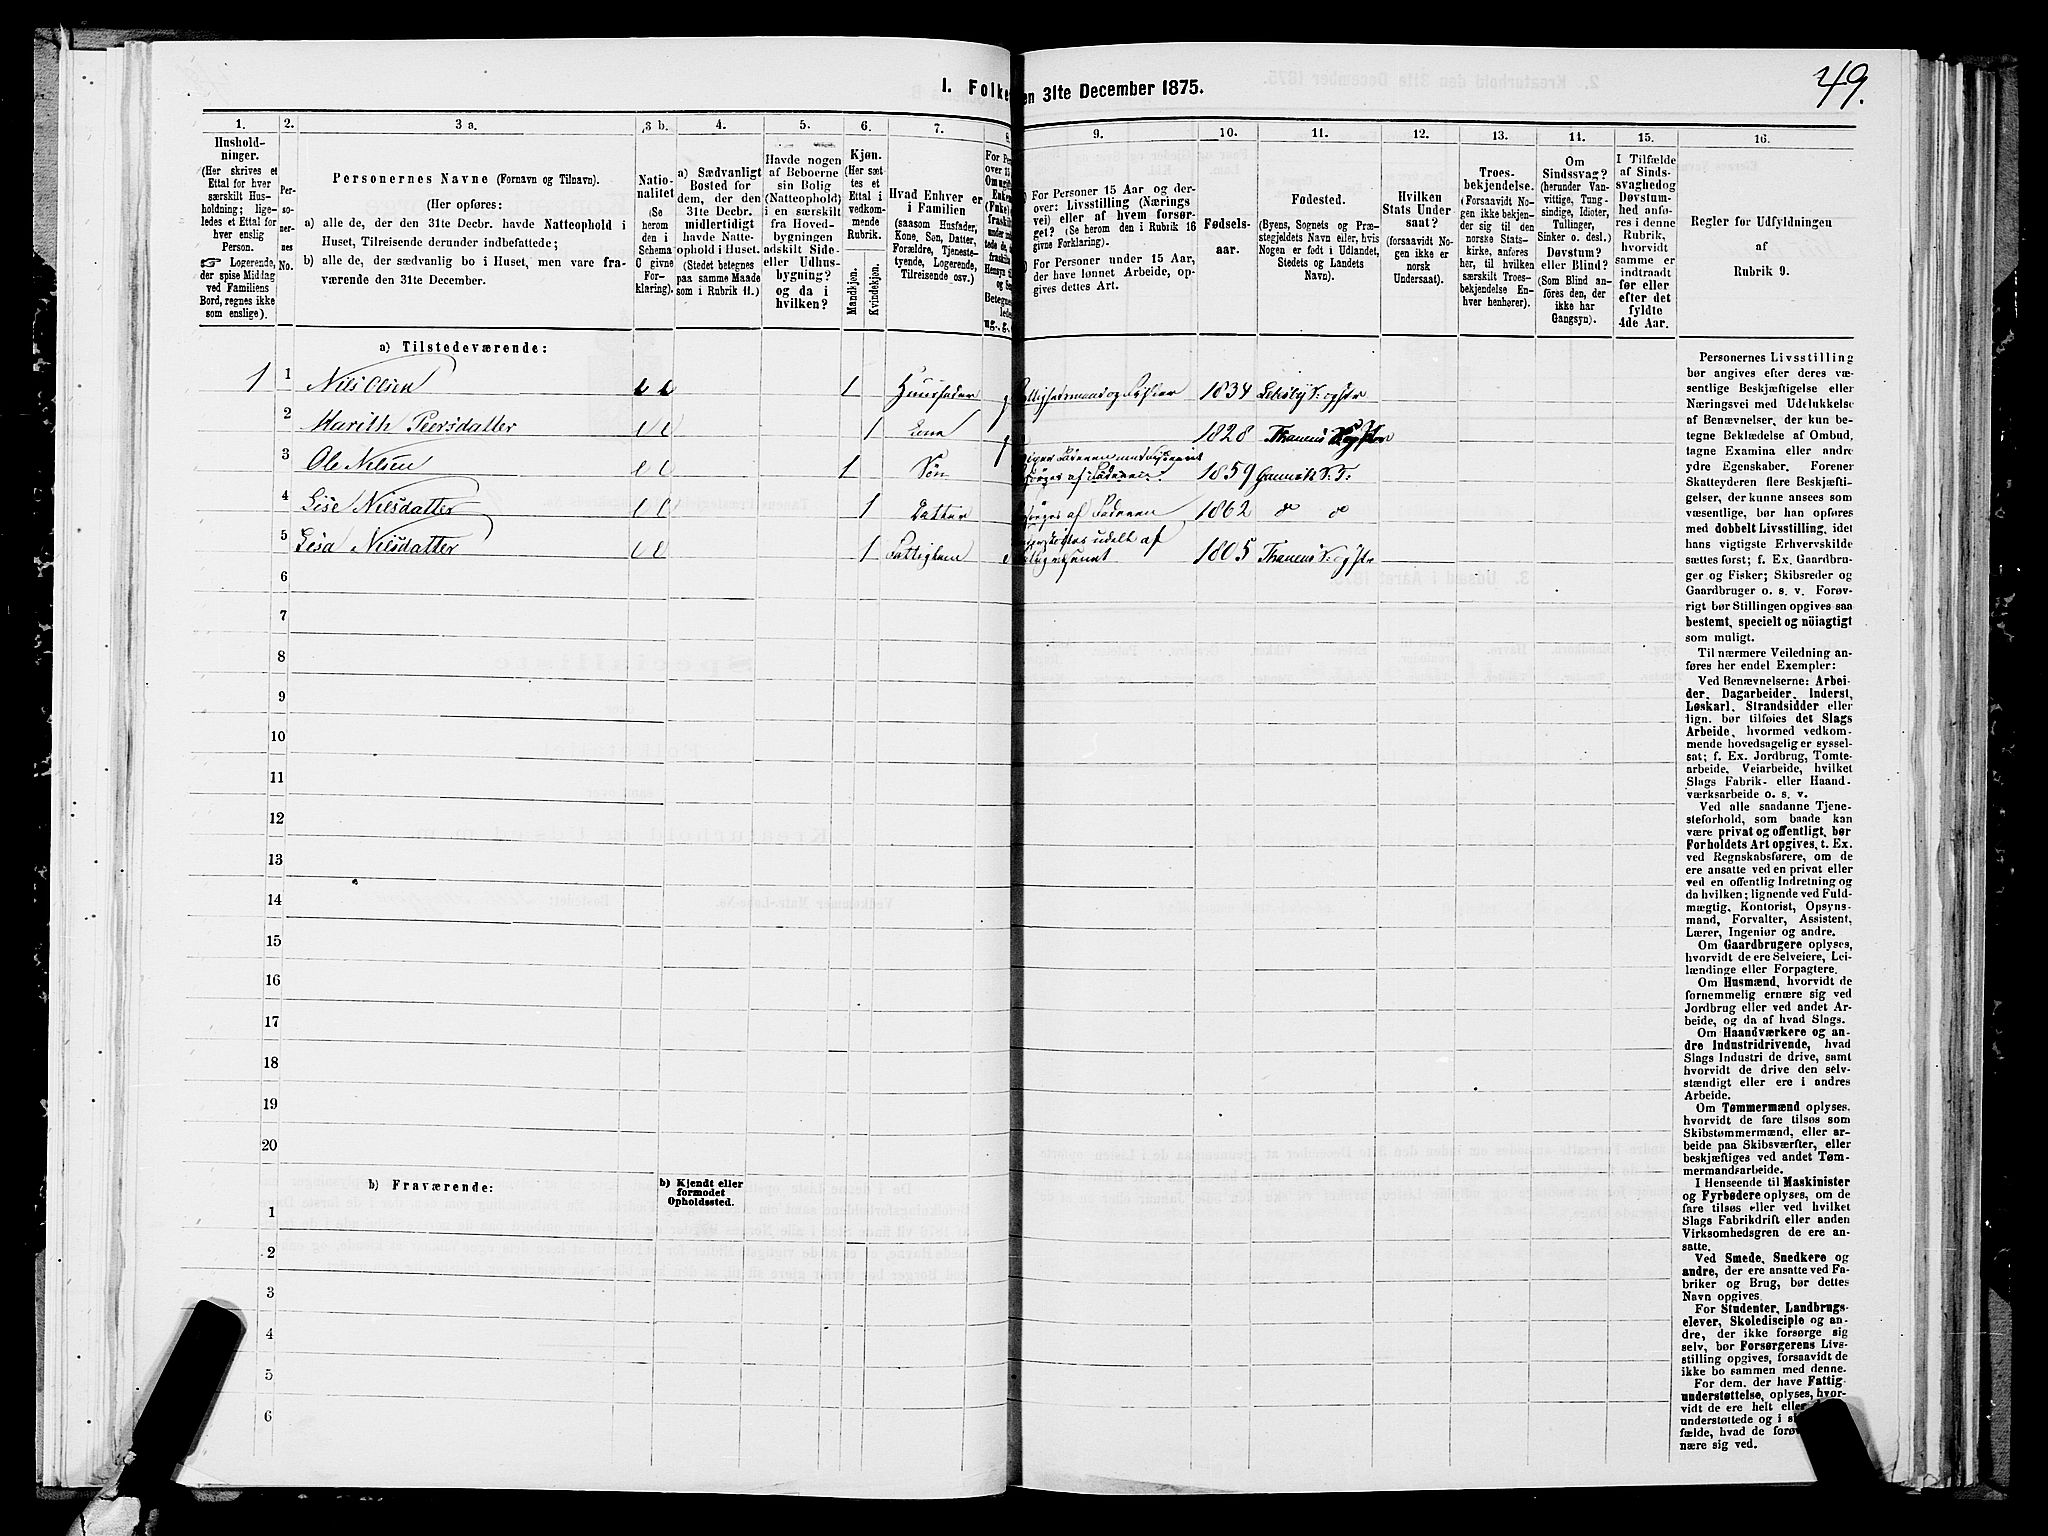 49.
I. Folke en 31te December 1875.
1. 2. 3 a. 3 b. 4. 5. 6. 7. 8. 9. 10. 11. 12. 13. 14. 15. 16.
Hushold-
ninger.
(Her skrives et
Ettal for hver
særskilt Hus-
holdning; lige-
ledes et Ettal for
hver enslig
Person.
☞ Logerende,
der spise Middag
ved Familiens
Bord, regnes ikke
som enslige).
Per-
so-
ner-
nes
No.
Personernes Navne (Fornavn og Tilnavn).
(Her opføres:
a) alle de, der den 31te Decbr. havde Natteophold i
Huset, Tilreisende derunder indbefattede;
b) alle de, der sædvanlig bo i Huset, men vare fra-
værende den 31te December.
Natio-
nalitet
(Se
herom
den i
Schema
C givne
For-
klaring).
a) Sædvanligt
Bosted for
dem, der den
31te Decbr.
midlertidigt
havde Natte-
ophold i Huset.
(Stedet betegnes
paa samme Maade
som i Rubrik 11.)
Havde nogen
af Beboerne
sin Bolig
(Natteophold)
i en særskilt
fra Hoved-
bygningen
adskilt Side-
eller Udhus-
bygning?
og da i
hvilken?
Kjøn.
(Her sæt-
tes et
Ettal i
vedkom-
mende
Rubrik.
Mandkjøn.
Kvindekjøn.
Hvad Enhver er
i Familien
(saasom Husfader,
Kone, Søn, Datter,
Forældre, Tjeneste-
tyende, Logerende,
Tilreisende osv.)
For Pe
over 15
Om ugif
Enke
(Fuke)
fraski
ug., g.,
For Personer 15 Aar og der-
over: Livsstilling (Nærings
vei) eller af hvem forsør-
get? (Se herom den i Rubrik 16
givne Forklaring).
For Personer under 15 Aar,
der have lønnet Arbeide, op-
gives dettes Art.
Fødsels-
aar.
Fødested.
(Byens, Sognets og Præ-
stegjeldets Navn eller, hvis
Nogen er født i Udlandet,
Stedets og Landets
Navn).
Hvilken
Stats Under
saat?
(forsaavidt No-
gen ikke er
norsk
Undersaat).
Troes-
bekjendelse.
(Forsaavidt No-
gen ikke bekjen-
der sig til den
norske Stats-
kirke, anføres
her, til hvilken
særskilt Troes-
bekjendelse En-
hver henhører).
Om
Sindssvag?
(herunder Van-
vittige, Tung-
sindige, Idioter,
Tullinger,
Sinker o. desl.)
Døvstum?
eller Blind?
(Som Blind an-
føres den, der
ikke har
Gangsyn).
I Tilfælde
af Sinds-
svaghed og
Døvstum-
hed anfø-
res i denne
Rubrik,
hvorvidt
samme er
indtraadt
før eller
efter det
fyldte
4de Aar.
Regler for Udfyldningen
af
Rubrik 9.
a) Tilstedeværende:
1 1 Nils Olsen 1 Huusfader g 1834
2 Marith Peersdatter 1 g 1828
3 Ole Nilsen 1 Søn 1859
4 Lise Nilsdatter 1 Datter af Faderen 1862 do do
5 Lisa Nilsdatter 1 Fattiglem udelt af 1805
6
7
8
9
10
11
12
13
14
15
16
17
18
19
20
b) Fraværende:
b) Kjendt eller
formodet
Opholdssted.
1
2
3
4
5
6
Personernes Livsstilling
bør angives efter deres væ-
sentlige Beskjæftigelse eller
Næringsvei med Udelukkelse
af Benævnelser, der kun be-
tegne Beklædelse af Ombud,
tagne Examina eller andre
ydre Egenskaber. Forener
Skatteyderen flere Beskjæfti-
gelser, der kunne ansees som
væsentlige, bør han opføres
med dobbelt Livsstilling, idet
hans vigtigste Erhvervskilde
sættes først; f. Ex. Gaardbru-
ger og Fisker; Skibsreder og
Gaardbruger o. s. v. Forøv-
rigt bør Stillingen opgives saa
bestemt, specielt og nøiagtigt
som muligt.
Til nærmere Veiledning an-
føres her endel Exempler:
Ved Benævnelserne: Arbei-
der, Dagarbeider, Inderst,
Løskarl, Strandsidder eller
lign. bør tilføies det Slags
Arbeide, hvormed vedkom-
mende hovedsagelig er syssel-
sat; f. Ex. Jordbrug, Tomte-
arbeide, Veiarbeide, hvilket
Slags Fabrik- eller Haand-
værksarbeide o. s. v.
Ved alle saadanne Tjene-
steforhold, som baade kan
være privat og offentligt, bør
Forholdets Art opgives, t. Ex.
ved Regnskabsførere, om de
ere ansatte ved en privat eller
ved en offentlig Indretning og
da hvilken; lignende ved Fuld-
mægtig, Kontorist, Opsyns-
mand, Forvalter, Assistent,
Lærer, Ingeniør og andre.
Om Gaardbrugere oplyses,
hvorvidt de ere Selveiere, Lei-
lændinge eller Forpagtere.
Om Husmænd, hvorvidt de
fornemmelig ernære sig ved
Jordbrug eller ved andet Ar-
beide, og da af hvad Slags.
Om Haandværkere og an-
dre Industridrivende, hvad
Slags Industri de drive, samt
hvorvidt de drive den selv-
stændigt eller ere i andres
Arbeide.
Om Tømmermænd oplyses,
hvorvidt de fare tilsøs som
Skibstømmermænd, eller ar-
beide paa Skibsværfter, eller
beskjæftiges ved andet Tøm-
mermandsarbeide.
I Henseende til Maskinister
og Fyrbødere oplyses, om de
fare tilsøs eller ved hvilket
Slags Fabrikdrift eller anden
Virksomhedsgren de ere an-
satte.
Ved Smede, Snedkere og
andre, der ere ansatte ved Fa-
briker og Brug, bør dettes
Navn opgives.
For Studenter, Landbrugs-
elever, Skoledisciple og an-
dre, der ikke forsørge sig
selv, bør Forsørgerens Livs-
stilling opgives, forsaavidt de
ikke bo sammen med denne.
For dem, der have Fattig-
understøttelse, oplyses, hvor-
vidt de ere helt eller
understøttede og i s
fælde, hvad de forøv
nære sig ved.